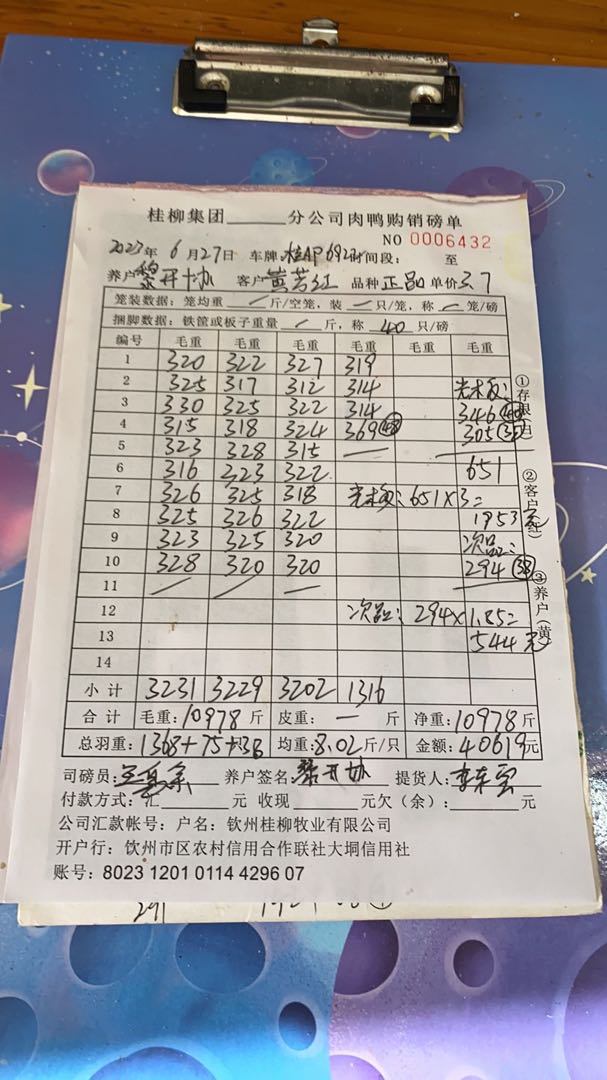 桂柳集团______分公司肉鸭购销磅单
NO 0006432
2023年 6月27日 车牌:桂AP692 时间段: 至
养户: 客户:黄芳红 品种 正品 单价 3.7
笼装数据: 笼均重 / 斤/空笼, 装 / 只/笼, 称 / 笼/磅
捆脚数据: 铁筐或板子重量 / 斤, 称 40 只/磅
编号 毛重 毛重 毛重 毛重 毛重 毛重
1 320 322 327 319
2 325 317 312 314
3 330 325 322 314 346
4 315 318 324 369 48 305
5 323 328 315 —
6 316 323 322 651
7 326 325 318 651×3=
8 325 326 322 1953元
9 323 325 320 次品:
10 328 320 320 294 38
11 / / —
12 次品: 294×1.85=
13 544元
14
小计 3231 3229 3202 1316
合计 毛重: 10978 斤 皮重: — 斤 净重: 10978 斤
总羽重: 1368+75+38 均重: 8.02 斤/只 金额: 40619元
司磅员: 养户签名: 提货人:
付款方式: 汇______元 收现______元欠(余):______元
公司汇款帐号: 户名: 钦州桂柳牧业有限公司
开户行: 钦州市区农村信用合作联社大垌信用社
账号: 8023 1201 0114 4296 07
①存根(白)
②客户(红)
③养户(黄)
291